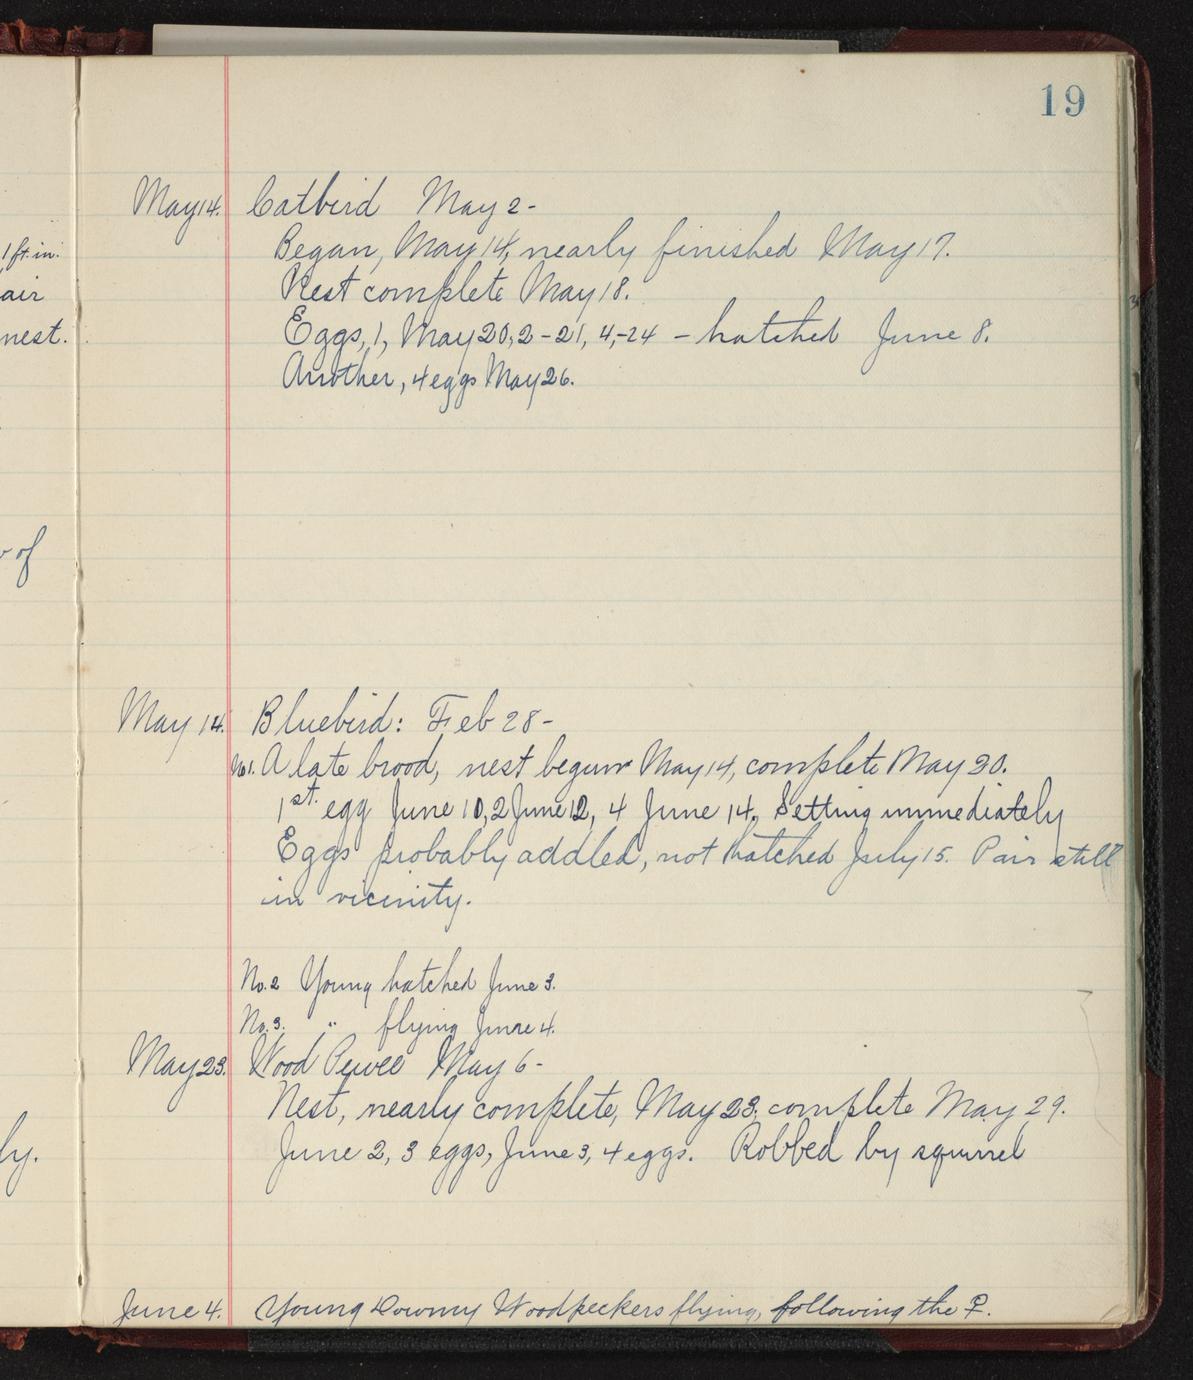 19
May 14. Catbird May 2-
Began, May 14, nearly finished May 17.
1 ft. in.
Nest complete May 18.
air
Eggs, 1, May 20, 2-21, 4,-24 - hatched June 8.
nest.
Another, 4 eggs May 26.
of
May 14. Bluebird: Feb 28-
No1. A late brood, nest begun May 14, complete May 30.
1st. egg June 10, 2 June 12, 4 June 14. Setting immediately
Eggs probably addled, not hatched July 15. Pair still
in vicinity.
No. 2 Young hatched June 3.
No. 3. " flying June 4.
May 23. Wood Pewee May 6-
Nest, nearly complete, May 23, complete May 29.
June 2, 3 eggs, June 3, 4 eggs. Robbed by squirrel
ly.
June 4. Young Downy Woodpeckers flying, following the ♀.